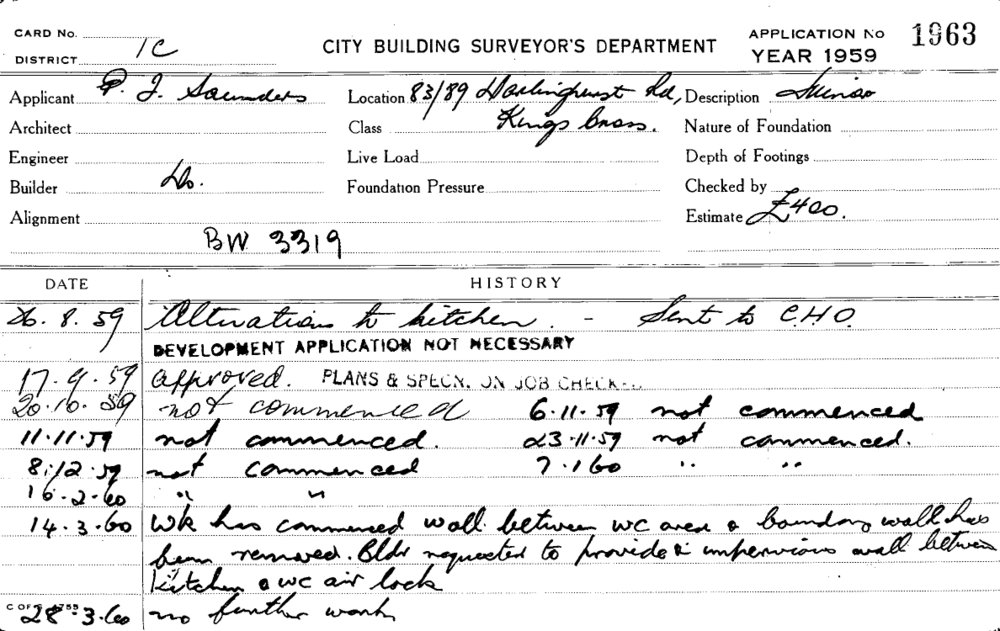 CARD No.
DISTRICT 1C
CITY BUILDING SURVEYOR'S DEPARTMENT
APPLICATION No 1963
YEAR 1959
Applicant P. J. Saunders
Location 83/89 Darlinghurst Rd,
Description Minor
Architect
Class Kings Cross.
Nature of Foundation
Engineer
Live Load
Depth of Footings
Builder Do.
Foundation Pressure
Checked by
Alignment
Estimate £400.
BW 3319
DATE HISTORY
26. 8. 59 Alterations to kitchen. - Sent to C.H.O.
DEVELOPMENT APPLICATION NOT NECESSARY
17. 9. 59 Approved. PLANS & SPECN. ON JOB CHECK
20. 10. 59 not commenced 6. 11. 59 not commenced
11. 11. 59 not commenced. 23. 11. 59 not commenced.
8. 12. 59 not commenced 7. 1 60 " "
16. 2. 60 " "
14. 3. 60 Wk has commenced wall between wc area & boundary wall has
been removed. Bldr requested to provide impervious wall between
kitchen & wc air lock
28. 3. 60 no further work